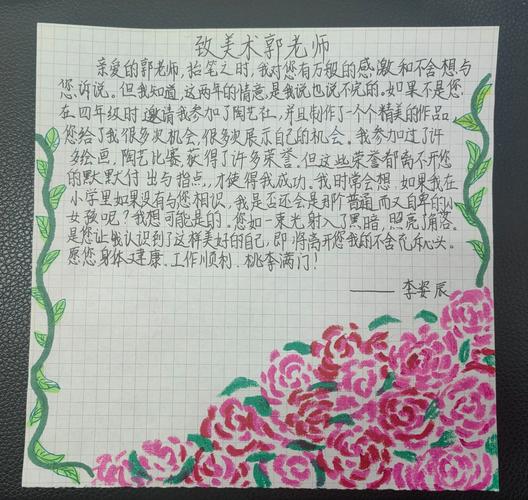 致美术郭老师
亲爱的郭老师,抬笔之时,我对您有万般的感激和不舍想与
您诉说。但我知道,这两年的情意,是我说也说不完的。如果不是您
在四年级时邀请我参加了陶艺社,并且制作了一个个精美的作品。
您给了我很多次机会,很多次展示自己的机会。我参加过了许
多绘画,陶艺比赛,获得了许多荣誉。但这些荣誉都离不开您
的默默付出与指点,才使得我成功。我时常会想,如果我在
小学里如果没有与您相识,我是否还会是那个普通而又自卑的小
女孩呢?我想可能是的。您如一束光射入了黑暗,照亮角落。
是您让我认识到了这样美好的自己,即将离开您我的不舍充斥心头。
愿您身体健康、工作顺利、桃李满门!
——李姿辰